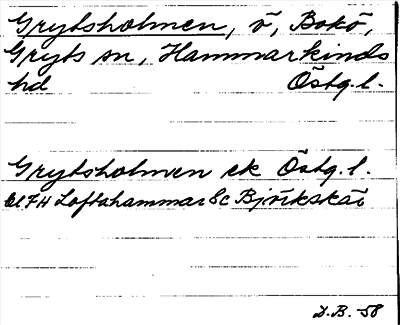 Grytsholmen, ö, Bokö,
Gryts sn, Hammarkinds
hd Östg.l.
Grytsholmen ek Östg.l.
bl 7H Loftahammar Sc Björkskär
D.B. -58